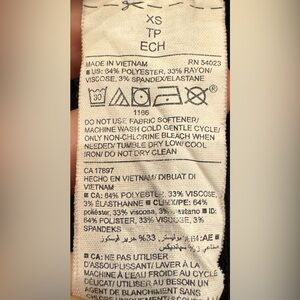 XS
TP
ECH
MADE IN VIETNAM RN 54023
■ US: 64% POLYESTER, 33% RAYON/
VISCOSE, 3% SPANDEX/ELASTANE
30
1166
DO NOT USE FABRIC SOFTENER/
MACHINE WASH COLD GENTLE CYCLE/
ONLY NON-CHLORINE BLEACH WHEN
NEEDED/ TUMBLE DRY LOW/ COOL
IRON/ DO NOT DRY CLEAN
CA 17897
HECHO EN VIETNAM/ DIBUAT DI
VIETNAM
■ CA: 64% POLYESTER, 33% VISCOSE,
3% ÉLASTHANNE ■ PE: 64%
poliéster, 33% viscosa, 3% ■ ID:
64% POLISTER, 33% VISCOSE, 3%
SPANDEKS
■ AE: 64% بوليستر، 33% حرير
■ CA: NE PAS UTILISER
D'ASSOUPLISSANT/ LAVER À LA
MACHINE À L'EAU FROIDE AU CYCLE
DÉLICAT/ UTILISER UN
AGENT DE BLANCHIMENT SANS